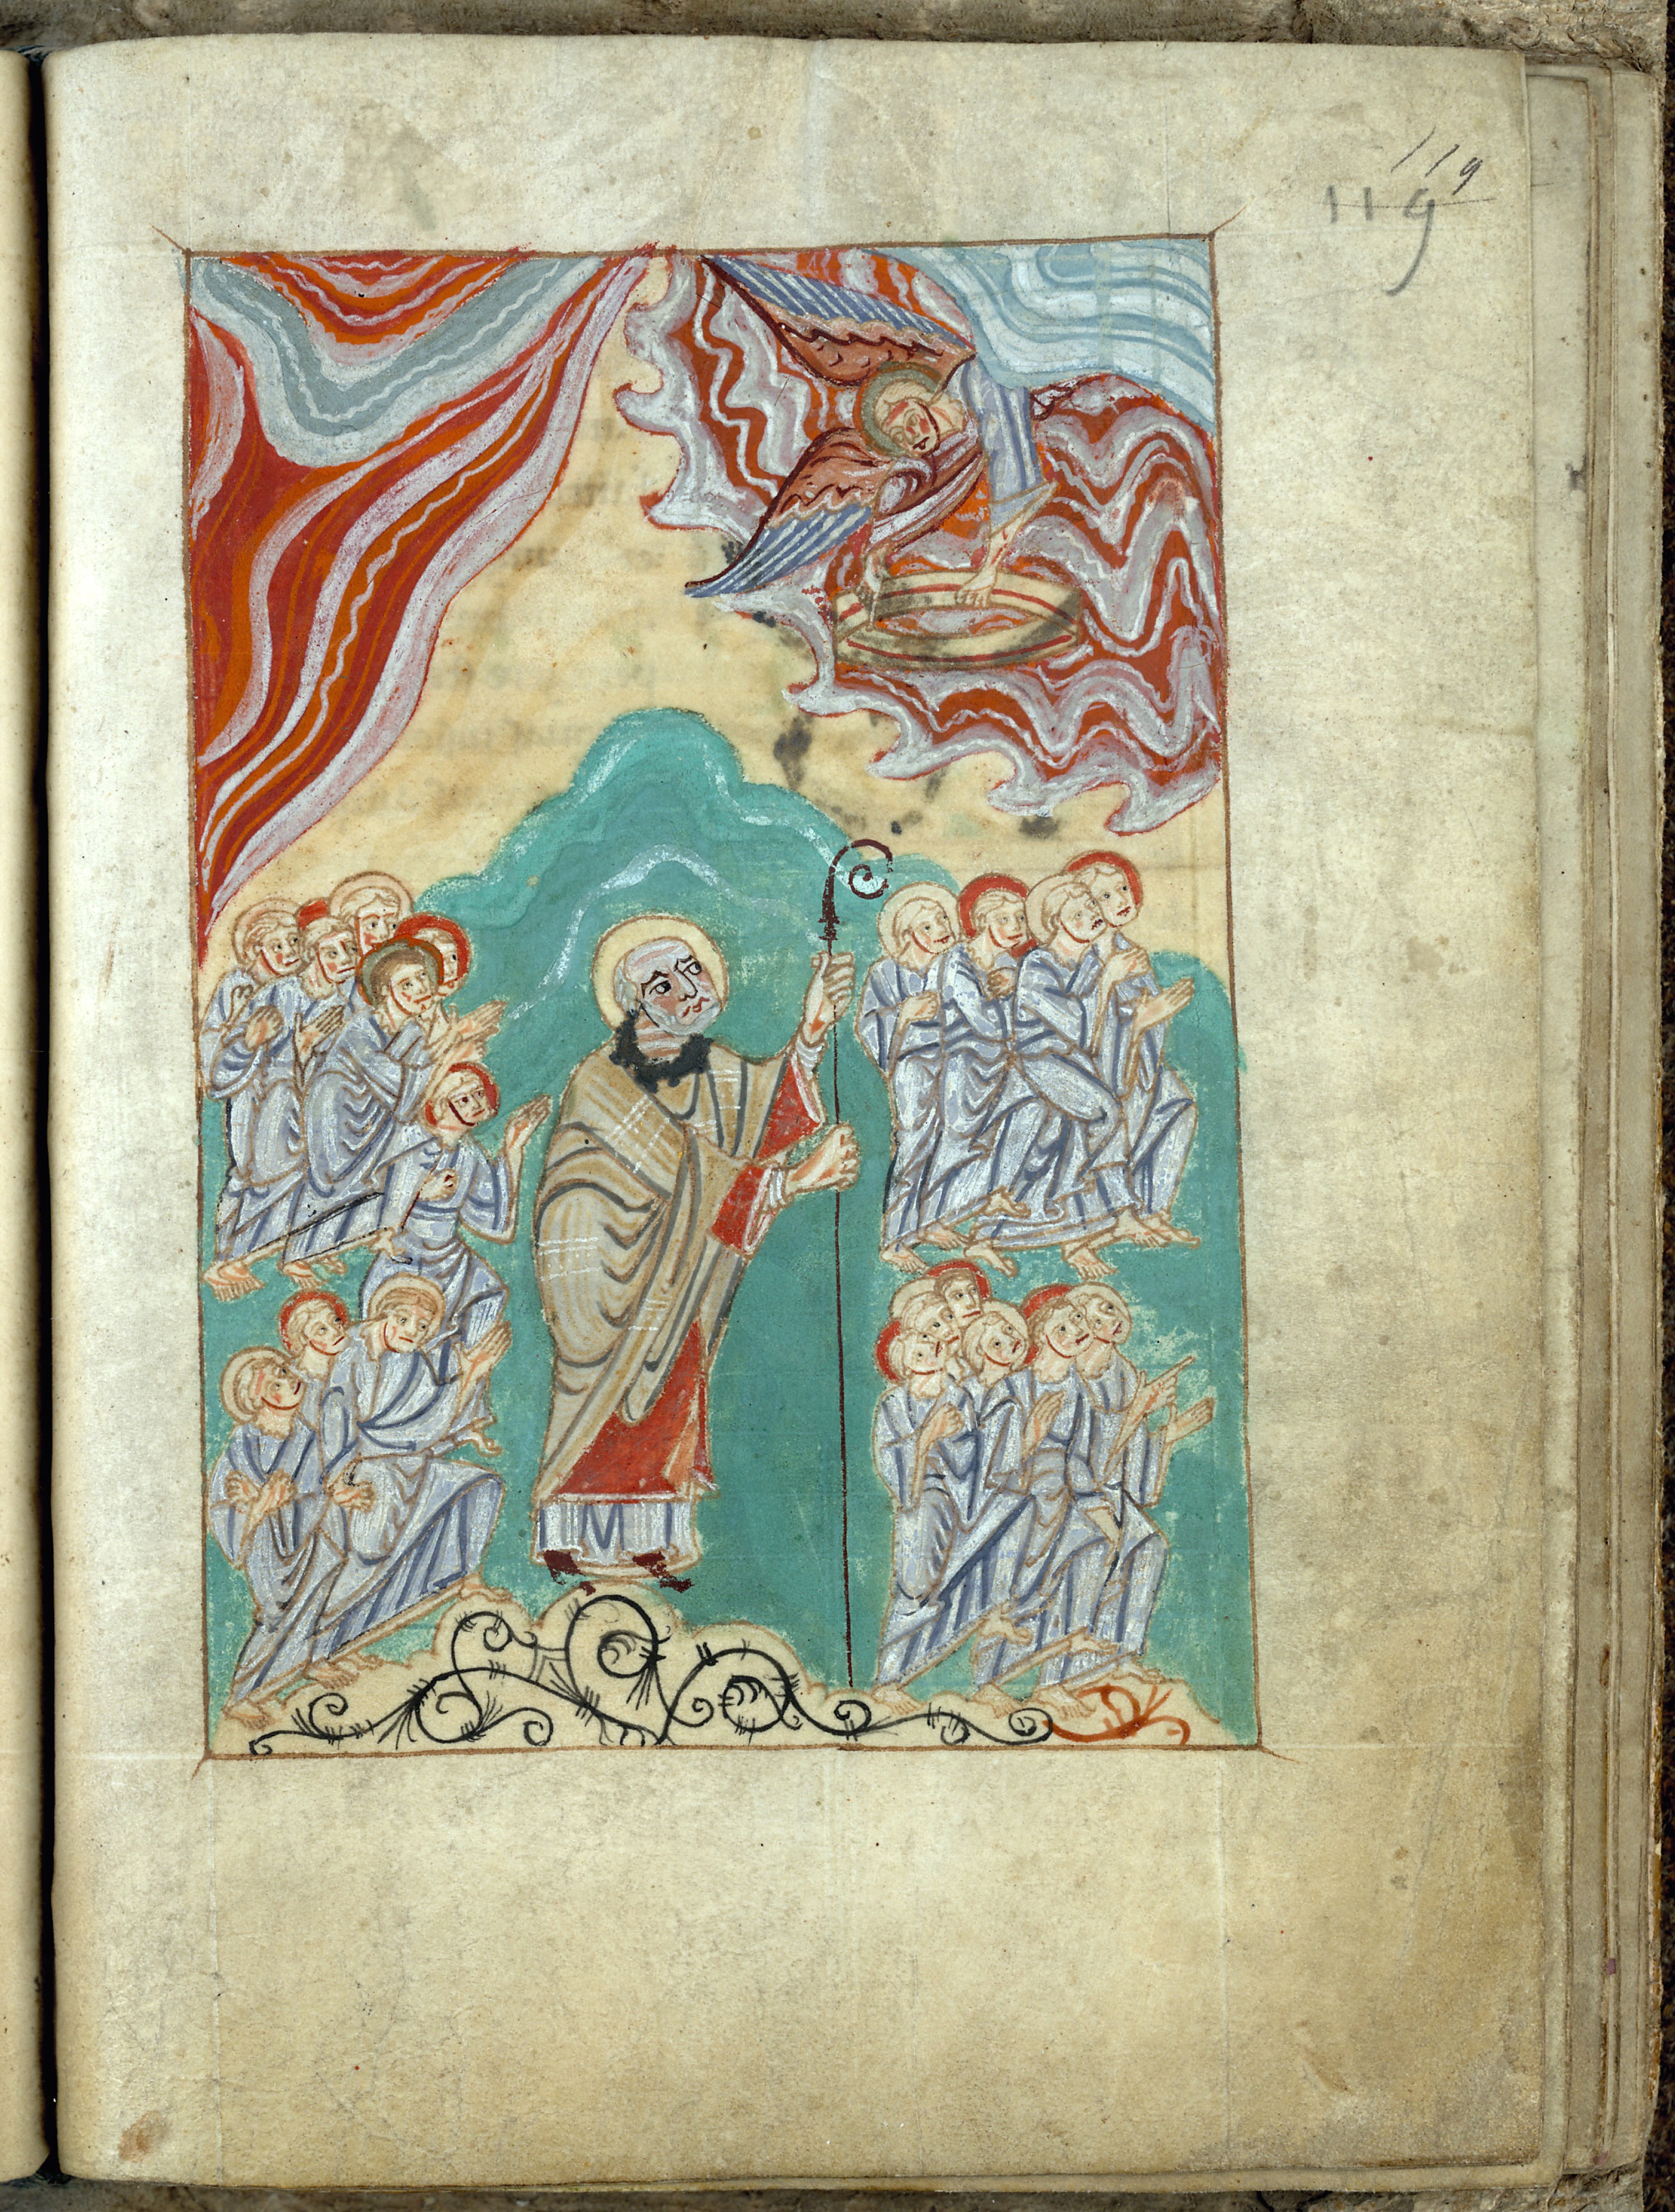 119
119